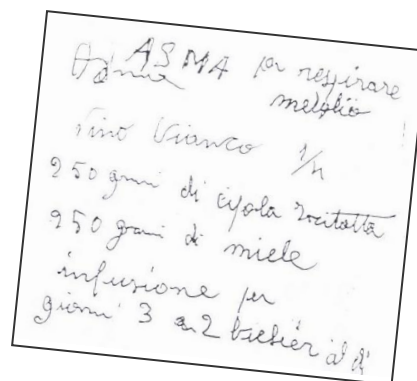 ASMA per respirare
meloglio
Vino Vianco
250 grami di cipola
250 grami di miele
infusione per
giorni 3 2 bichier al di